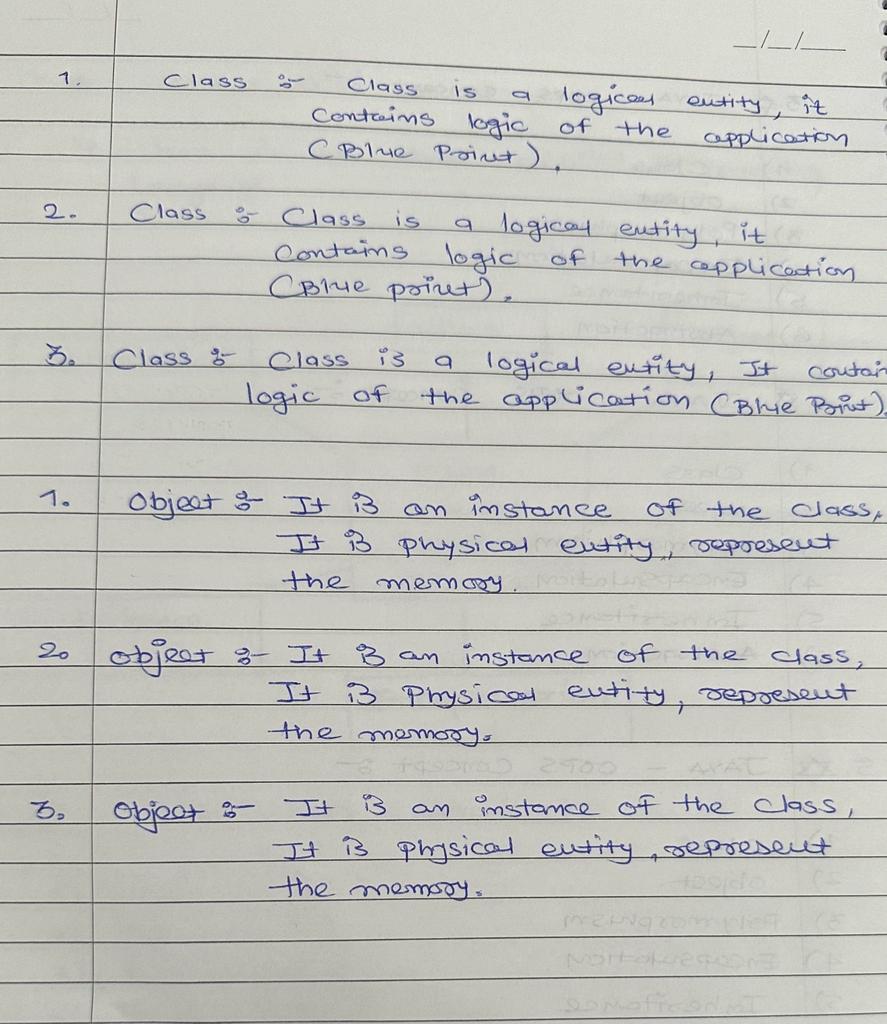 _/_/__
1. Class :- Class is a logical entity, it
contains logic of the application
(Blue Print).
2. Class :- Class is a logical entity, it
contains logic of the application
(Blue print).
3. Class :- Class is a logical entity, It contain
logic of the application (Blue Print).
1. Object :- It is an instance of the class,
It is physical entity, represent
the memory.
2. object :- It is an instance of the class,
It is Physical entity, represent
the memory.
3. Object :- It is an instance of the class,
It is physical entity, represent
the memory.